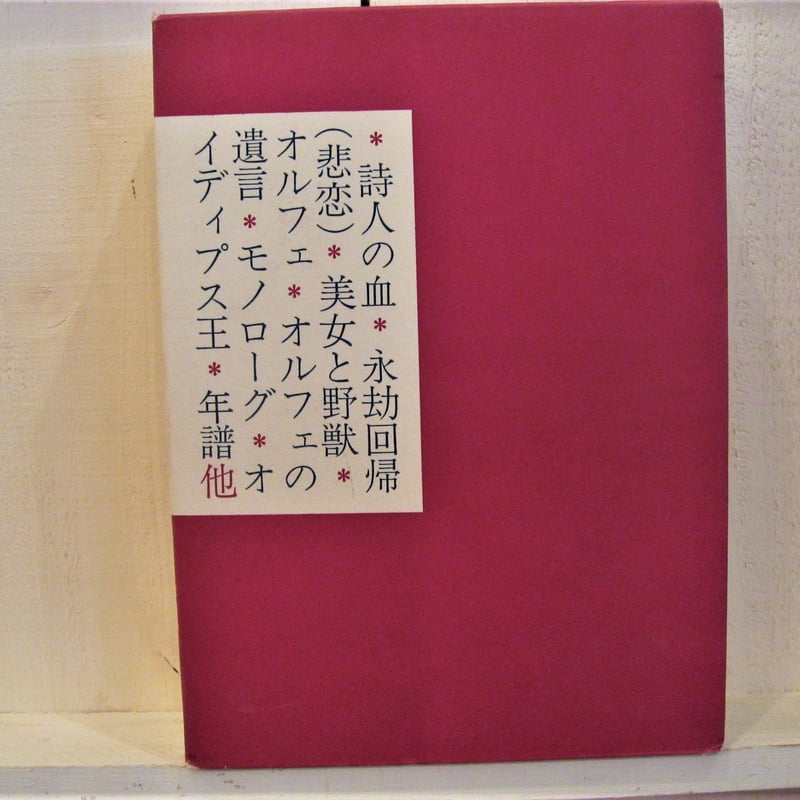 *詩人の血*永劫回帰
（悲恋）*美女と野獣*
オルフェ*オルフェの
遺言*モノローグ*オ
イディプス王*年譜他